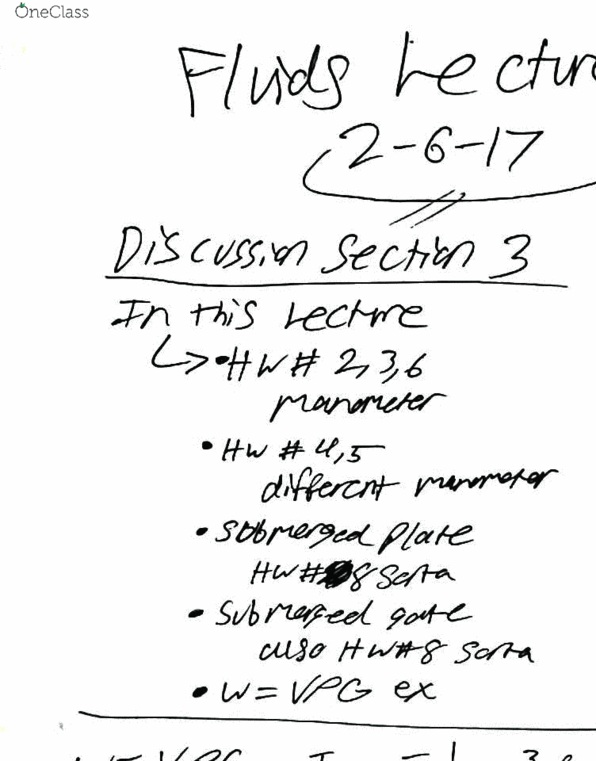 OneClass
Fluids Lectur
2-6-17
Discussion Section 3
In this Lecture
↳ • HW # 2,3,6
manometer
• HW # 4,5
different manometer
• Submerged plate
HW # 8 Sorta
• Submerged gate
also HW#8 Sorta
• W = VPG ex